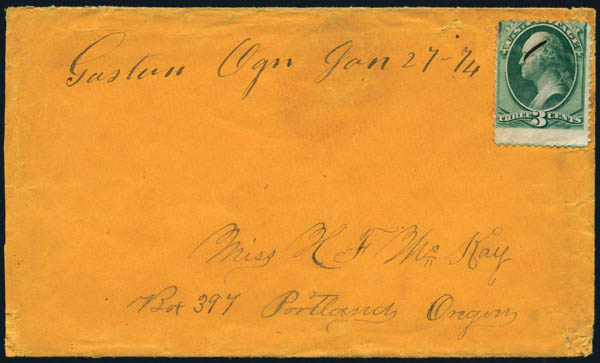 Gaston Ogn Jan 27-74
U.S. POSTAGE
THREE 3 CENTS
Miss H F Mc Kay
Box 397 Portland Oregon